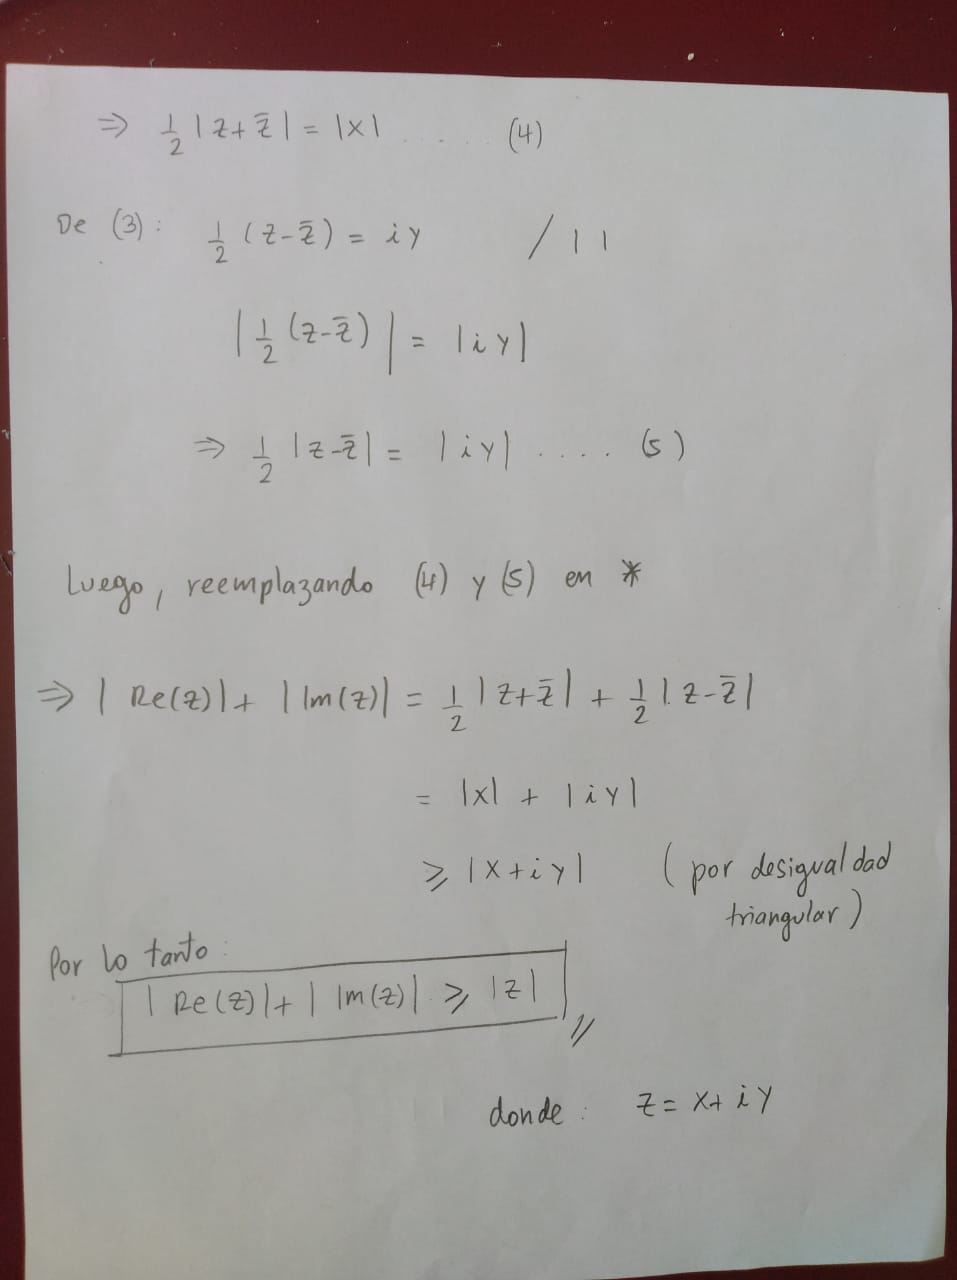 ⇒ 1/2 |z+z̄| = |x| ..... (4)
De (3): 1/2 (z-z̄) = iy / | |
|1/2 (z-z̄)| = |iy|
⇒ 1/2 |z-z̄| = |iy| .... (5)
Luego, reemplazando (4) y (5) en *
⇒ |Re(z)| + |Im(z)| = 1/2 |z+z̄| + 1/2 |z-z̄|
= |x| + |iy|
⩾ |x+iy| (por desigualdad
triangular)
Por lo tanto:
|Re(z)| + |Im(z)| ⩾ |z| //
donde: z = x+iy